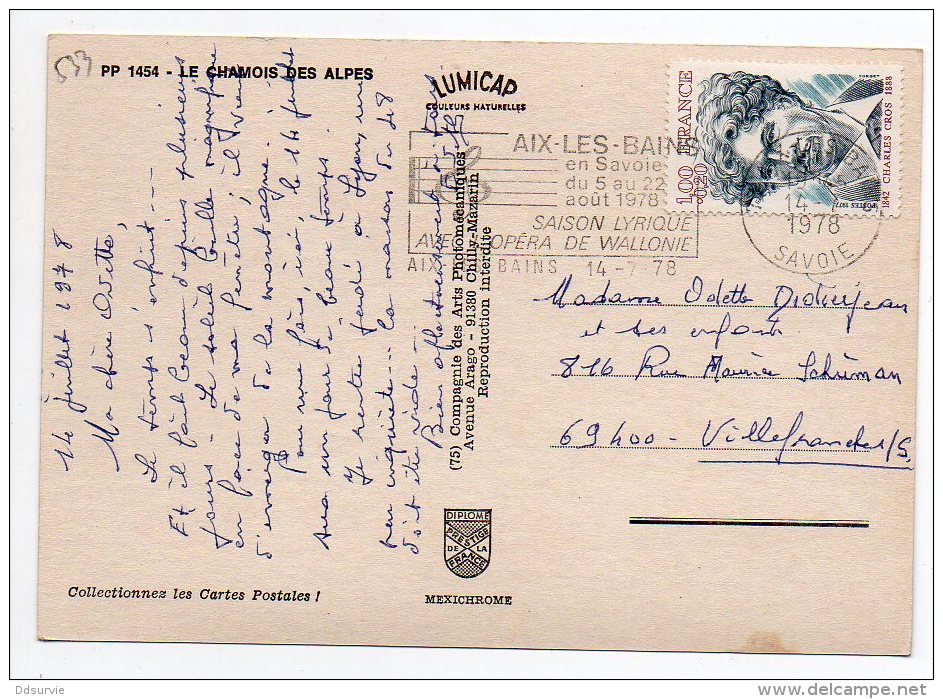 533
PP 1454 - LE CHAMOIS DES ALPES
LUMICAP
COULEURS NATURELLES
AIX-LES-BAINS
en Savoie
du 5 au 22
août 1978
SAISON LYRIQUE
AVEC OPÉRA DE WALLONIE
AIX BAINS 14-7-78
14 -
1978
SAVOIE
FRANCE
1,00
+0,20
FORGET
1842 CHARLES CROS 1888
POSTES 1977
14 juillet 1978
Ma chère Odette,
Le temps s'enfuit ---
Et il fait beau depuis plusieurs
jours - Le soleil brille magnifique
en face de ma fenêtre; il vient
d'émerger de la montagne.
Pour une fois, ici, le 14 juillet
sera un jour de beau temps.
Je rentre jeudi à Lyon, un
peu inquiète... la maison du 48
doit être vide -
Bien affectueusement à tous
(75) Compagnie des Arts Photomécaniques
Avenue Arago - 91380 Chilly-Mazarin
Reproduction interdite
Madame Odette Didierjean
et ses enfants
816 Rue Maurice Schuman
69400 - Villefranche s/S.
DIPLOME
PRESTIGE
DE LA
FRANCE
MEXICHROME
Collectionnez les Cartes Postales !
Ddsurvie
www.delcampe.net